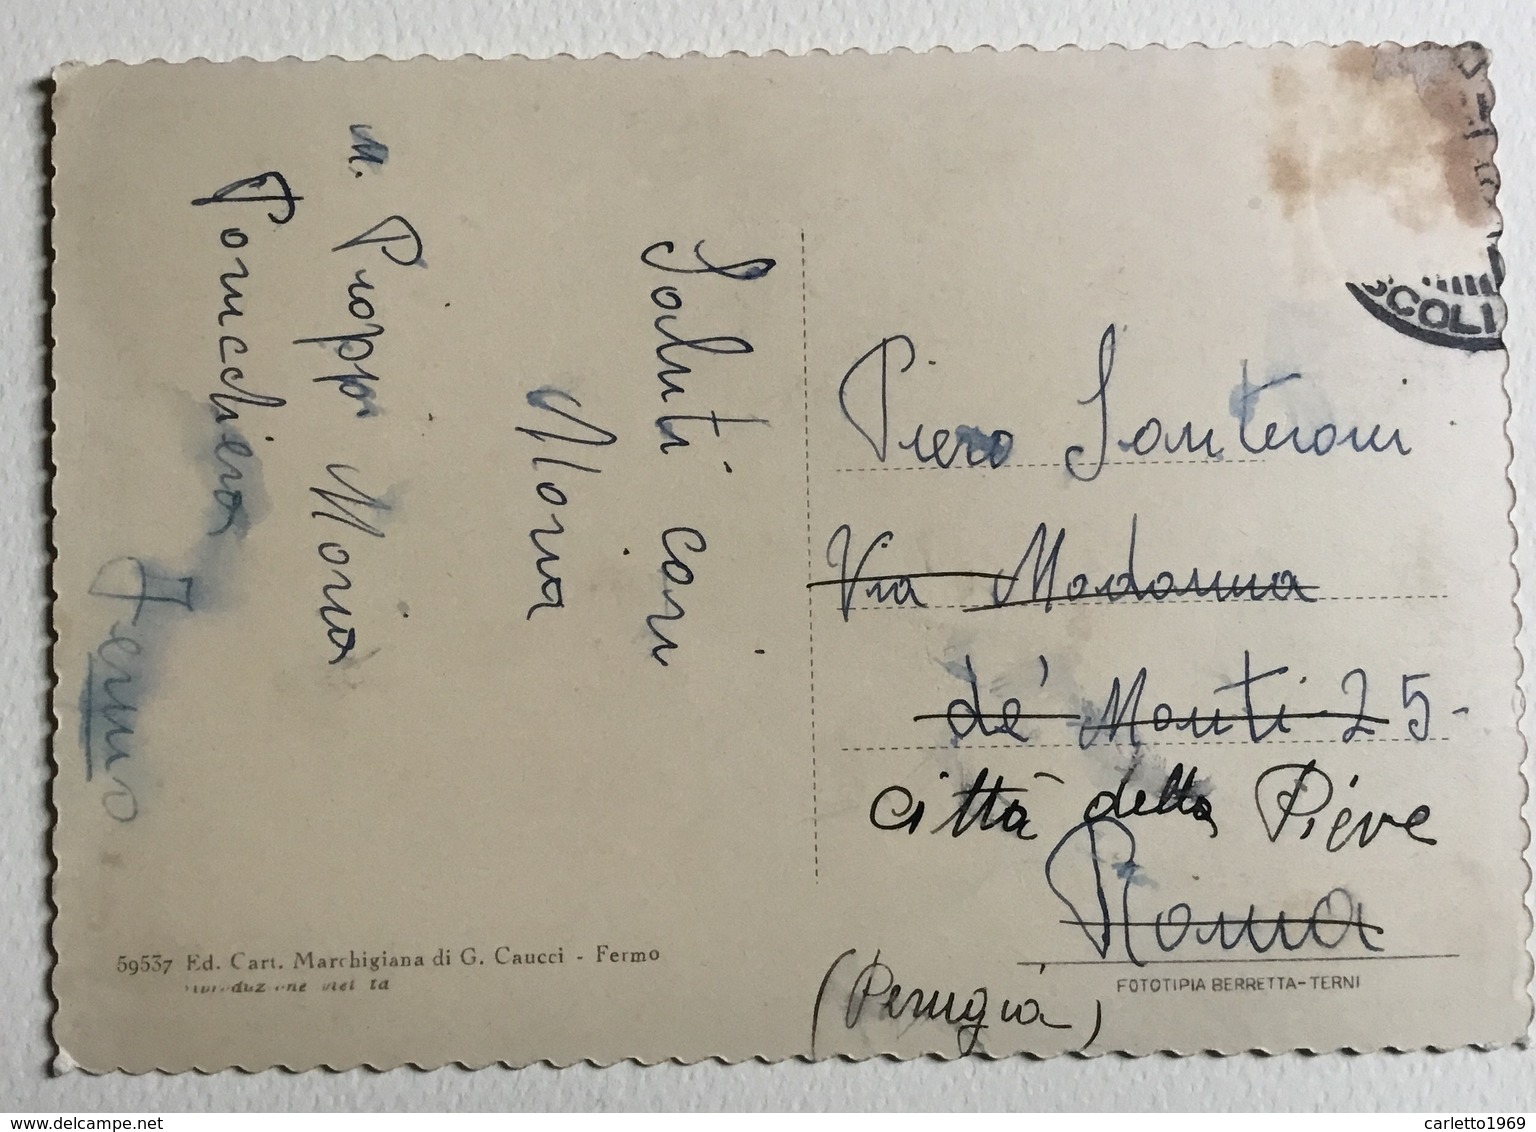 Saluti cari
Maria
M. Pioppi Maria
Fermo
Piero Santeroni
Via Madonna
de' Monti 25-
città della Pieve
Roma
(Perugia)
SCOLI
59537 Ed. Cart. Marchigiana di G. Caucci - Fermo
FOTOTIPIA BERRETTA-TERNI
www.delcampe.net
carletto1969